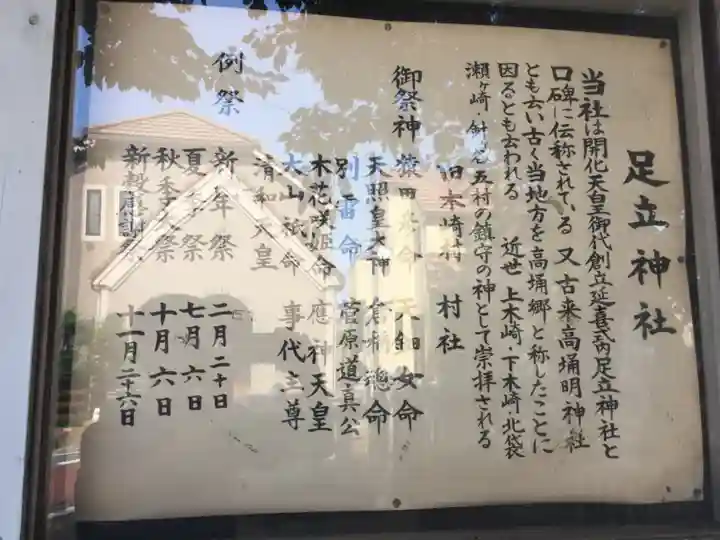 足立神社
当社は開化天皇御代創立延喜式内足立神社と
口碑に伝称されている 又古来高埇明神社
とも云い古く当地方を高埇郷と称したことに
因るとも云われる 近世 上木崎・下木崎・北袋
瀬ヶ崎・針ヶ谷五村の鎮守の神として崇拝される
旧木崎村 村社
御祭神 猿田彦命 天鈿女命
天照皇大神 倉稲魂命
別雷命 菅原道真公
木花咲姫命 應神天皇
大山祇命 事代主尊
清和天皇
例祭
新年祭 二月二十日
夏季祭 七月六日
秋季大祭 十月六日
新穀感謝祭 十一月二十六日